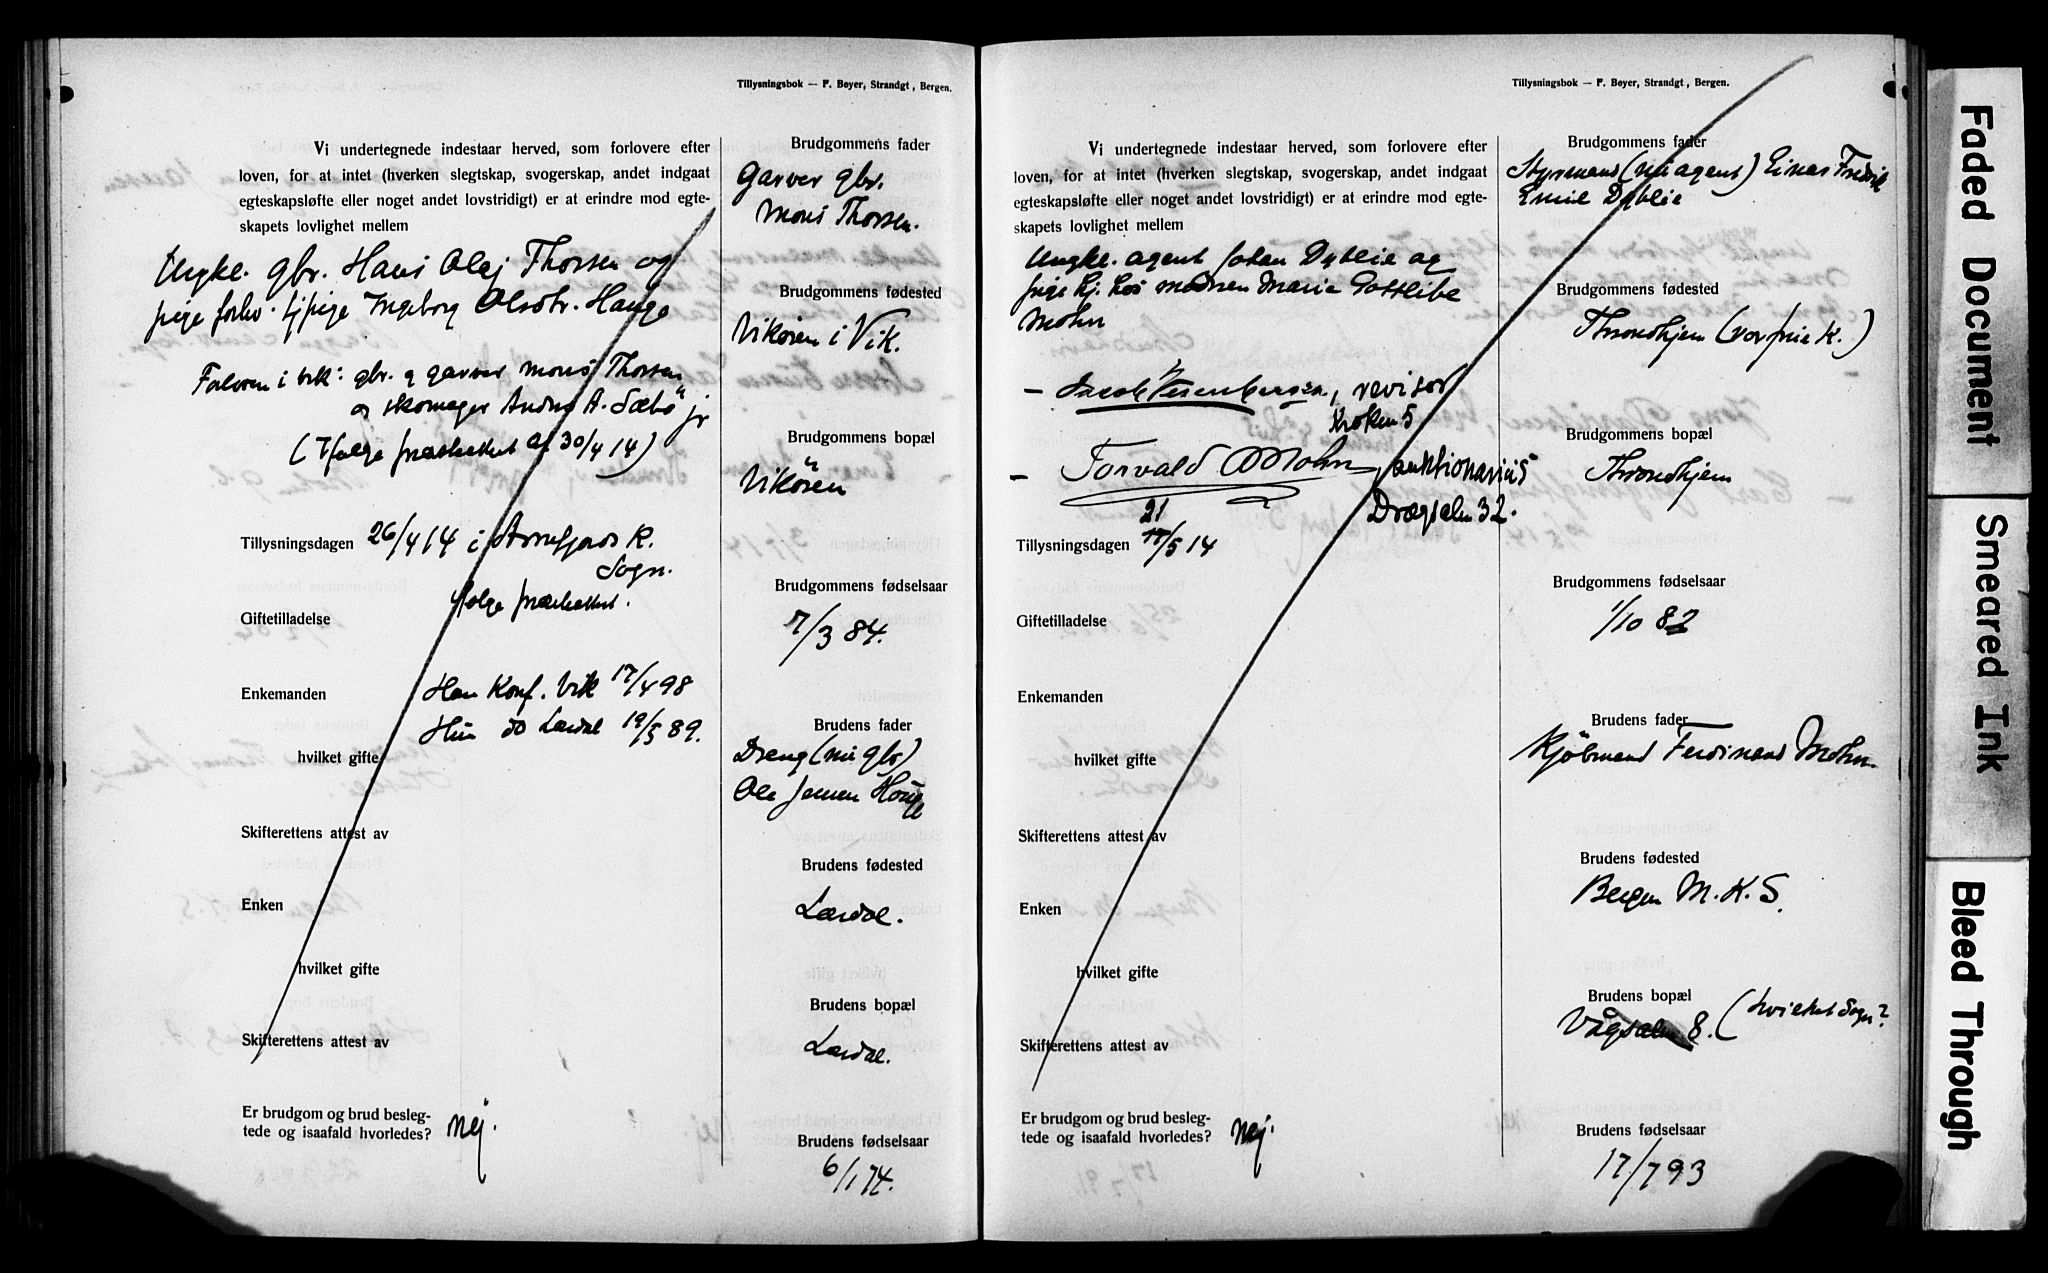 Tillysningsbok — F. Beyer, Strandgt, Bergen.
Vi undertegnede indestaar herved, som forlovere efter
loven, for at intet (hverken slegtskap, svogerskap, andet indgaat
egteskapsløfte eller noget andet lovstridigt) er at erindre mod egte-
skapets lovlighet mellem
Ungkl. gbr. Hans Olaj Thorsen og
pige forhv. tj.pige Ingeborg Olsdtr. Hauge
Forlovere i Vik: gbr. og garver Mons Thorsen
og skomager Andris A. Sæbö jr
(Ifølge præsteattest af 30/4 14)
Tillysningsdagen 26/4 14 i Arnefjords K.
Sogn.
ifølge præsteattest.
Giftetilladelse
Enkemanden
Han Konf. Vik 17/4 98
Hun do Lærdal 19/5 89.
hvilket gifte
Skifterettens attest av
Enken
hvilket gifte
Skifterettens attest av
Er brudgom og brud besleg-
tede og isaafald hvorledes? Nej.
Brudgommens fader
Garver gbr.
Mons Thorsen.
Brudgommens fødested
Vikøren i Vik.
Brudgommens bopæl
Vikören
Brudgommens fødselsaar
7/3 84.
Brudens fader
Dreng (nu gbr)
Ole Jensen Houge
Brudens fødested
Lærdal.
Brudens bopæl
Lærdal.
Brudens fødselsaar
6/1 74.
Tillysningsbok — F. Beyer, Strandgt, Bergen.
Vi undertegnede indestaar herved, som forlovere efter
loven, for at intet (hverken slegtskap, svogerskap, andet indgaat
egteskapsløfte eller noget andet lovstridigt) er at erindre mod egte-
skapets lovlighet mellem
Ungkl. agent Johan Dyblie og
pige hj. hos modren Marie Gottlibe
Mohn
— Jacob Isenbergsen, revisor
Kroken 5
— Torvald Mohn, auktionarius
Drægsalm 32.
21
Tillysningsdagen 17/5 14
Giftetilladelse
Enkemanden
hvilket gifte
Skifterettens attest av
Enken
hvilket gifte
Skifterettens attest av
Er brudgom og brud besleg-
tede og isaafald hvorledes? Nej.
Brudgommens fader
Styrmand (nu agent) Einar Fredrik
Emil Dyblie
Brudgommens fødested
Throndhjem (Vor frue K.)
Brudgommens bopæl
Throndhjem
Brudgommens fødselsaar
1/10 82
Brudens fader
Kjöbmand Ferdinand Mohn.
Brudens fødested
Bergen M.K.S.
Brudens bopæl
Vågsalm 8. (hvilket Sogn?
Brudens fødselsaar
17/7 93
Faded Document
Smeared Ink
Bleed Through